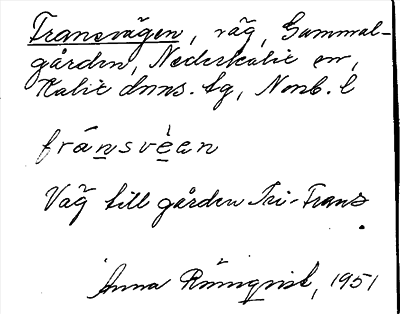 Fransvägen, väg, Gammal-
gården, Nederkalix sn,
Kalix dnns. tg, Norrb. l
fránsvèen
Väg till gården Fri-Frans
Anna Rönnqvist, 1951